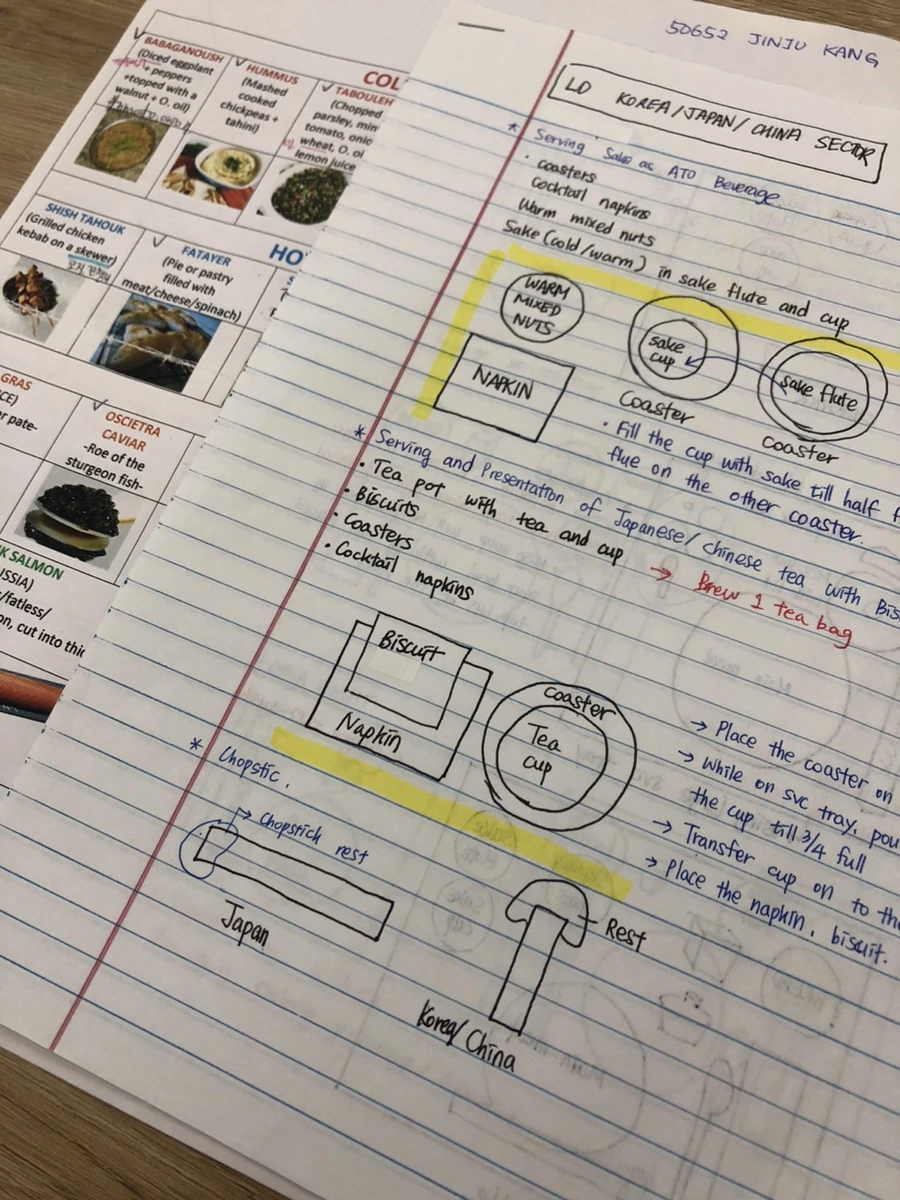 50652 JINJU KANG
LD KOREA/JAPAN/CHINA SECTOR
* Serving Sake as ATO Beverage
· coasters
Cocktail napkins
Warm mixed nuts
Sake (cold/warm) in sake flute and cup
WARM
MIXED
NUTS
NAPKIN
sake
cup
Coaster
sake flute
Coaster
· Fill the cup with sake till half
flue on the other coaster.
* Serving and Presentation of Japanese/chinese tea with Bis
· Tea pot with tea and cup → Brew 1 tea bag
· Biscuits
· Coasters
· Cocktail napkins
Biscuit
Napkin
coaster
Tea
cup
→ Place the coaster on
→ While on svc tray, pou
the cup till 3/4 full
→ Transfer cup on to the
→ Place the napkin, biscuit.
* Chopstic.
→ Chopstick rest
Japan
Rest
Korea/China
COL
BABAGANOUSH
(Diced eggplant
+ peppers
+topped with a
walnut + O. oil)
HUMMUS
(Mashed
cooked
chickpeas +
tahini)
TABOULEH
(Chopped
parsley, min
tomato, onio
wheat, O. oi
lemon juice
HO
SHISH TAHOUK
(Grilled chicken
kebab on a skewer)
FATAYER
(Pie or pastry
filled with
meat/cheese/spinach)
GRAS
CE)
r pate-
OSCIETRA
CAVIAR
-Roe of the
sturgeon fish-
K SALMON
SSIA)
/fatless/
on, cut into thic